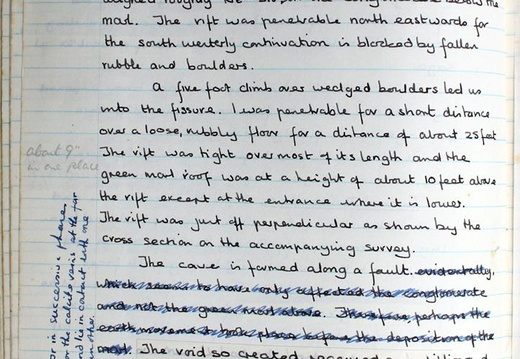 marl. The rift was penetrable north eastwards for
the south westerly continuation is blocked by fallen
rubble and boulders.
A five foot climb over wedged boulders led us
into the fissure. I was penetrable for a short distance
over a loose, rubbly floor for a distance of about 25 feet
The rift was tight over most of its length and the
green marl roof was at a height of about 10 feet above
the rift except at the entrance where it is lower.
The rift was just off perpendicular as shown by the
cross section on the accompanying survey.
The cave is formed along a fault. evidentally,
which seems to have only affected the conglomerate
and not the green marl above. Therefore perhaps the
earth movement took place before the deposition of the
marl. The void so created
about 9"
in one place
or in successive phases
for the calcite veins at the far
and lie in contact with one